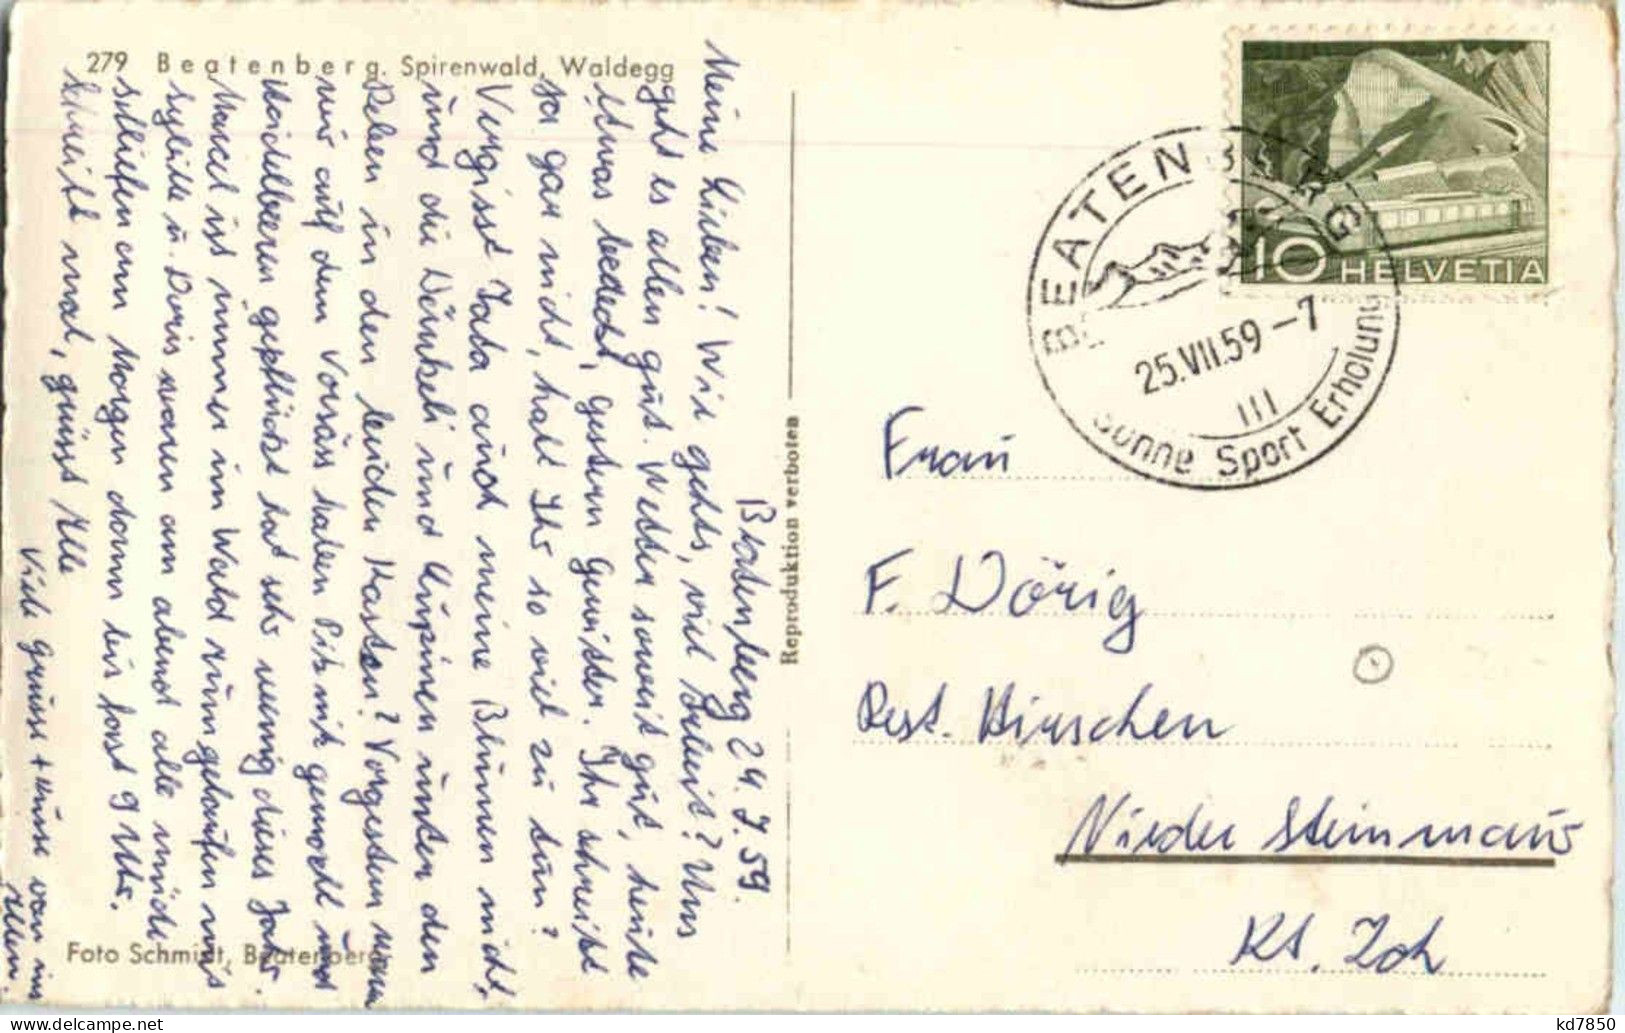 279 Beatenberg. Spirenwald, Waldegg
Beatenberg 24.7.59.
Meine Lieben! Wie gehts, viel Arbeit? Uns
geht es allen gut. Wetter soweit gut, heute
etwas bedeckt, gestern Gewitter. Ihr schreibt
ja gar nicht, habt Ihr so viel zu tun?
Vergisst Jada auch meine Blumen nicht,
und die und unter den
Reben in den beiden Kasten? Vorgestern waren
wir auf dem Vorsäss haben Pic nic gemacht und
Heidelbeeren gepflückt hat sehr wenig dieses Jahr.
Marcel ist immer im Wald rumgelaufen mit
Sybille u. Doris waren am abend alle müde
schliefen am Morgen dann bis fast 9 Uhr.
Schreibt mal, grüsst Alle
Viele Grüsse + Küsse von uns
Allen.
Foto Schmidt, Beatenberg
Reproduktion verboten
HELVETIA
10
BEATENBERG
25.VII.59-7
III
Sonne Sport Erholung
Frau
F. Dörig
Rest. Hirschen
Nieder Steinmaur
Kt. Zch
kd7850